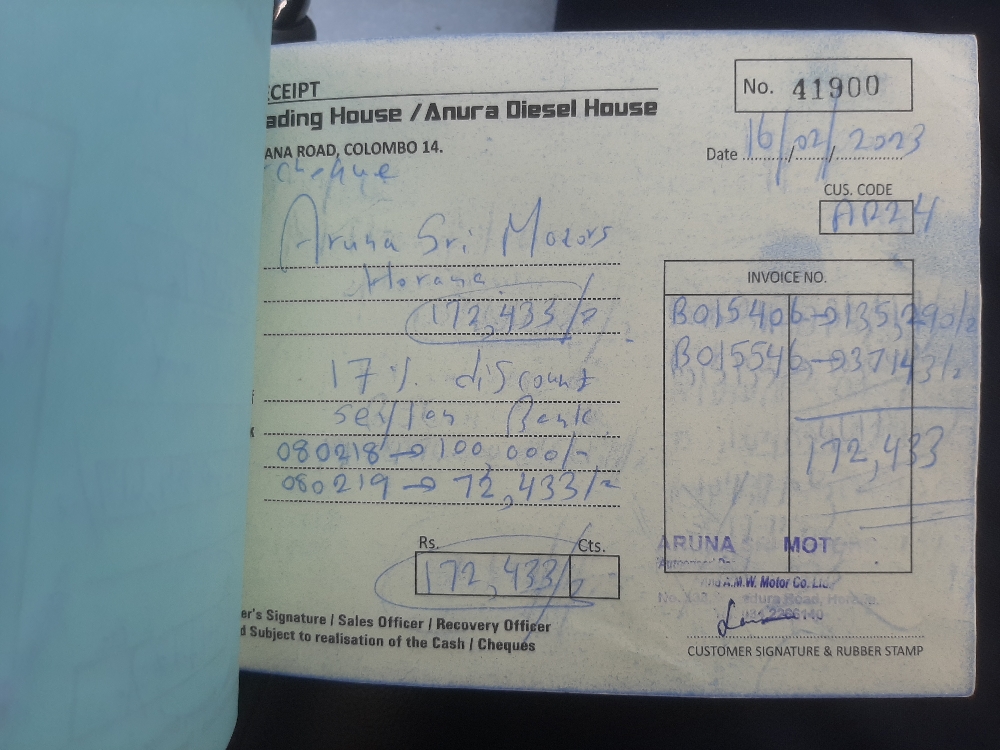 CEIPT
No. 41900
ading House / Anura Diesel House
ANA ROAD, COLOMBO 14.
Date 16/02/2023
cheque
CUS. CODE
AR24
Aruna Sri Motors
Horana
172,433/=
INVOICE NO.
B015406→135,290/=
B015546→37143/=
172,433
17% discount
Seylan Bank
080218→100,000/-
080219→72,433/=
Rs. Cts.
172,433/=
ARUNA MOT
A.M.W. Motor Co. Ltd.
er's Signature / Sales Officer / Recovery Officer
d Subject to realisation of the Cash / Cheques
CUSTOMER SIGNATURE & RUBBER STAMP